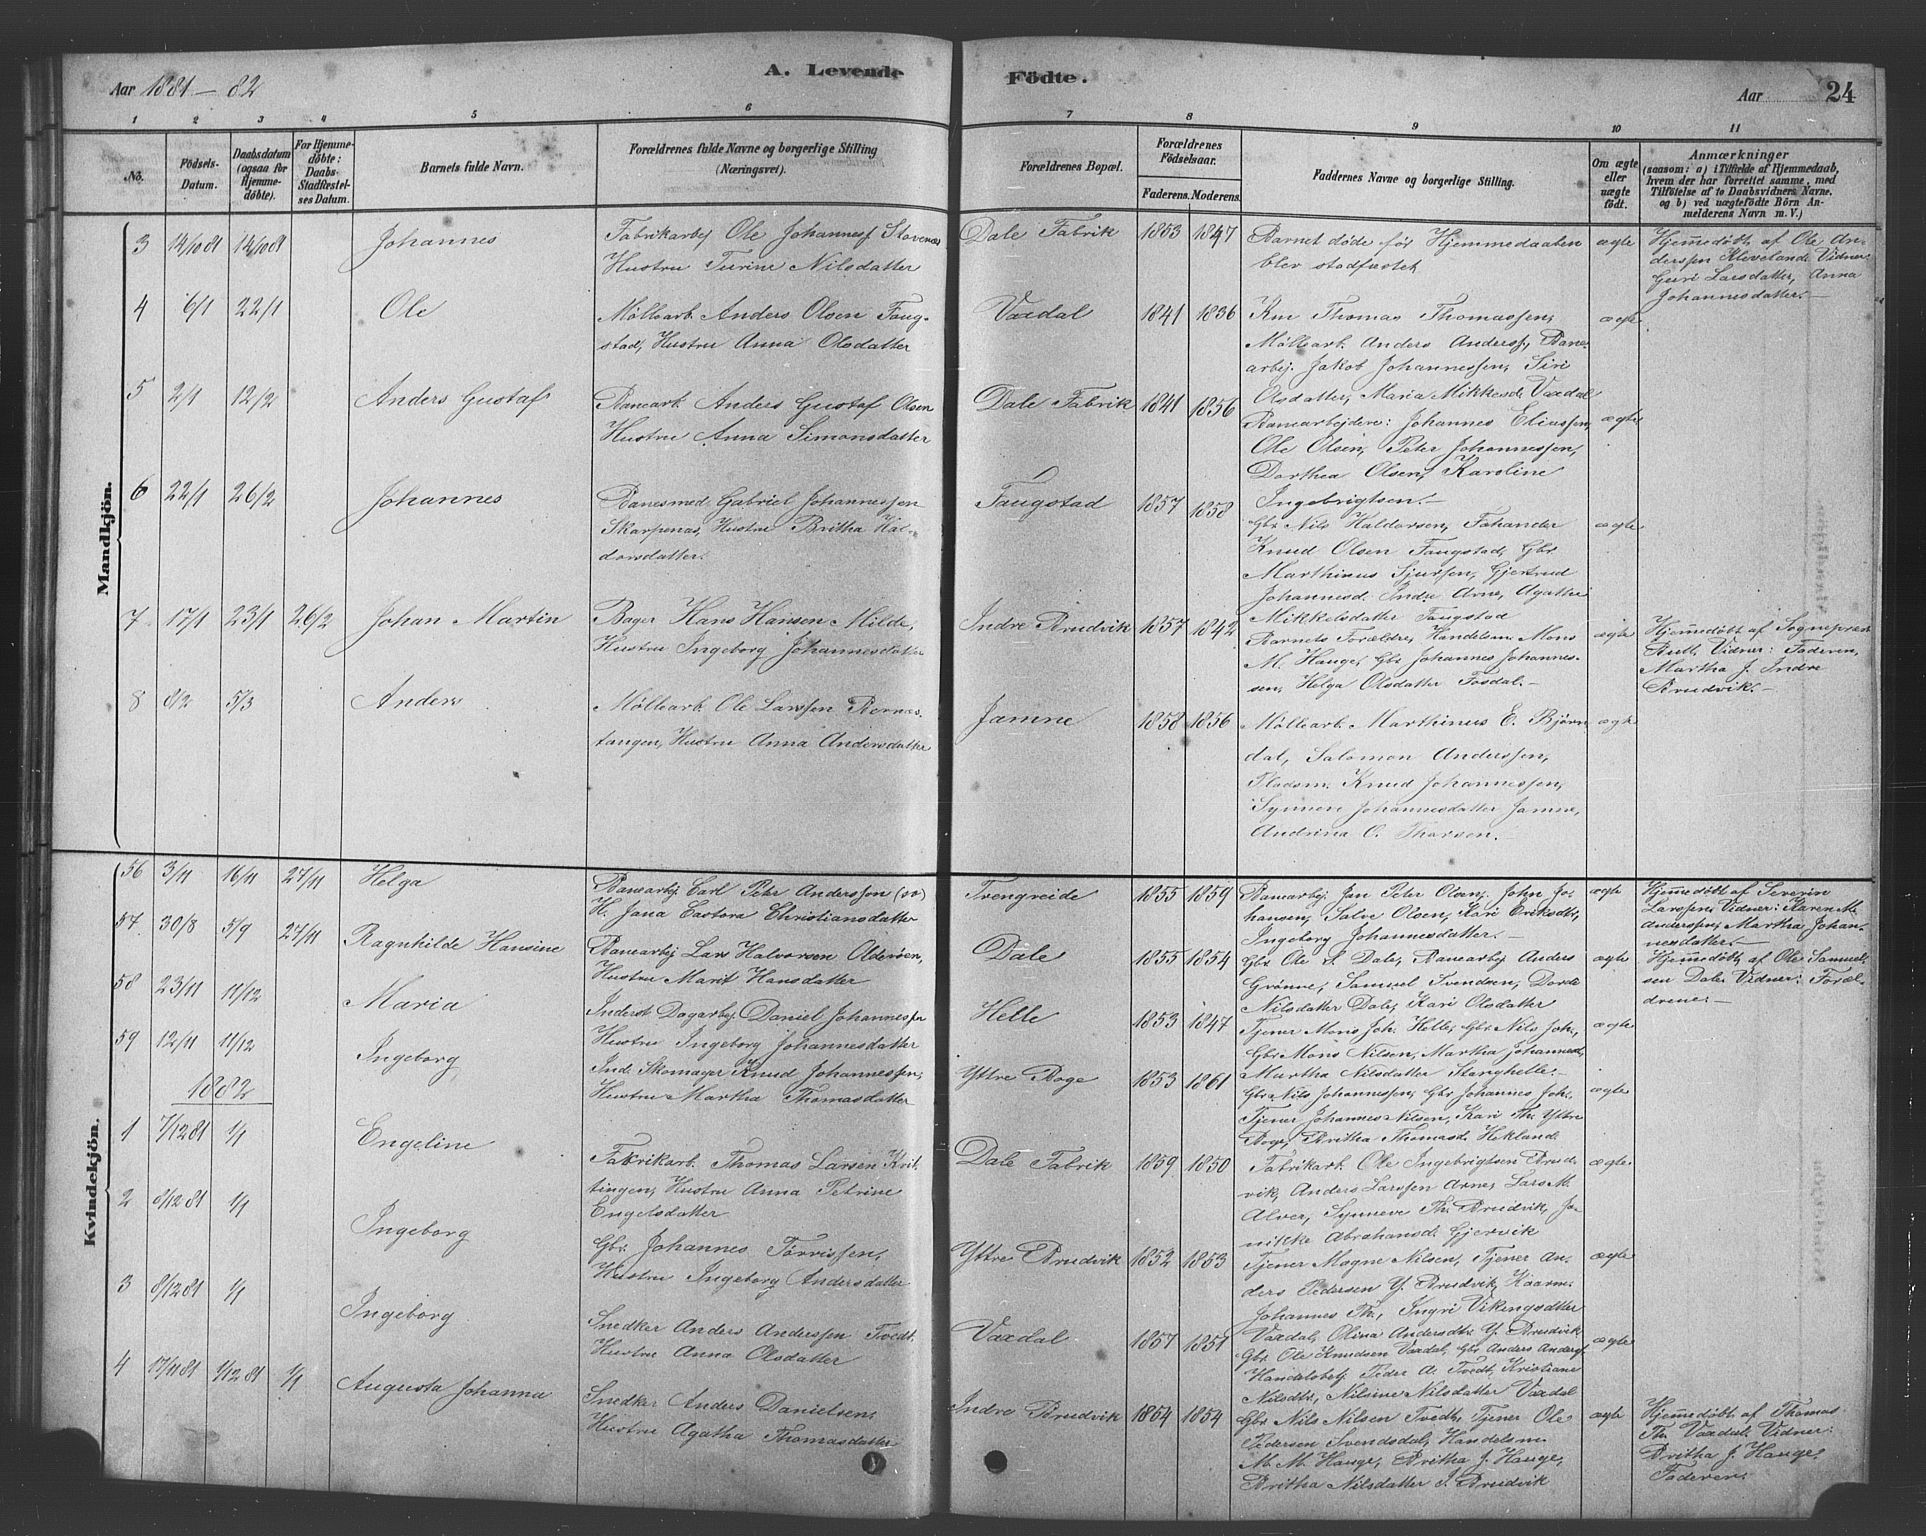 A. Levende
Födte.
Aar 1881 - 82
Aar
24
1 2 3 4 5 6 7 8 9 10 11
No.
Födsels-Datum.
Daabsdatum (ogsaa for Hjemmedöbte).
For Hjemmedöbte: Daabs-Stadfæstelses Datum.
Barnets fulde Navn.
Forældrenes fulde Navne og borgerlige Stilling (Næringsvei).
Forældrenes Bopæl.
Forældrenes Födselsaar.
Faderens. Moderens.
Faddernes Navne og borgerlige Stilling.
Om ægte eller uægte födt.
Anmærkninger
(saasom: a) i Tilfælde af Hjemmedaab,
hvem der har forrettet samme, med
Tilföielse af to Daabsvidners Navne,
og b) ved uægtefödte Börn An-
melderens Navn m. V.)
Mandkjön.
3 14/10 81 14/10 81 Johannes
Fabrikarbej Ole Johannesf Stavenæs
Hustru Turine Nilsdatter
Dale Fabrik 1853 1847
Barnet døde før Hjemmedaaben
blev stadfæstet
ægte
Hjemmedøbt af Ole An-
derssen Kleveland. Vidner:
Guri Larsdatter, Anna
Johannesdatter.-
4 6/1 22/1 Ole
Møllearb. Anders Olsen Faug-
stad, Hustru Anna Olsdatter
Vaxdal 1841 1836
Km Thomas Thomassen,
Møllearb. Anders Anderss, Bane-
arbej. Jakob Johannessen, Siri
Olsdatter, Maria Mikkelsd. Vaxdal
ægte
5 2/1 12/2 Anders Gustaf
Banearb. Anders Gustaf Olsen
Hustru Anna Simonsdatter
Dale Fabrik 1841 1856
Banearbejdere: Johannes Eliassen,
Ole Olsen, Peter Johannessen,
Dorthea Olsen, Karoline
Ingebrigtsen.-
ægte
6 22/1 26/2 Johannes
Banesmed Gabriel Johannessen
Skarpenæs, Hustru Britha Hal-
dorsdatter.
Faugstad 1857 1858
Gbr. Nils Haldorsen, Fahander
Knud Olsen Faugstad, Gbr
Marthinus Sjursen, Gjertrud
Johannesd. Indre Arne, Agathe
Mikkelsdatter Faugstad
ægte
7 17/1 23/1 26/2 Johan Martin
Bager Hans Hansen Milde,
Hustru Ingeborg Johannesdatter
Indre Brudvik 1857 1842
Barnets Forældre, Handelsm. Mons
M. Hauge, Gbr Johannes Johannes-
sen, Helga Olsdatter Fosdal.-
ægte
Hjemmedøbt af Sognepræst
Rull. Vidner: Faderen,
Martha J. Indre
Brudvik.-
8 8/2 5/3 Anders
Møllearb. Ole Larssen Bernæs-
tangen, Hustru Anna Andersdatter
Jamne 1858 1856
Møllearb. Marthinus E. Bjørn-
dal, Salomon Anderssen,
Pladsm. Knud Johannessen,
Synneve Johannesdatter Jamne,
Andrina O. Thorsen.-
ægte
Kvindekjön.
56 3/11 16/11 27/11 Helga
Banearbej Carl Peter Andersson (sv)
H. Jana Castora Christiansdatter
Trengreide 1855 1859
Banearbej. Jan Peter Olsen, John Jo-
hansen, Salve Olsen, Kari Eriksdtr,
Ingeborg Johannesdatter.-
ægte
Hjemmedøbt af Severin
Larssen. Vidner: Karen M.
Anderssen, Martha Johan-
nesdatter.-
57. 30/8 5/9 27/11 Ragnhilde Hansine
Banearbej Lars Halvorsen Olderøen,
Hustru Marit Hansdatter
Dale 1855 1854
Gbr. Ole S Dale, Banearbej Anders
Grønne, Samuel Svendsen, Dorde
Nilsdatter Dale, Kari Olsdatter
ægte
Hjemmedøbt af Ole Samuel-
sen Dale. Vidner: Foræl-
drene.-
58 23/11 11/12 Maria
Inderst Dagarbej Daniel Johannessen
Hustru Ingeborg Johannesdatter
Helle 1853 1847
Tjener Mons Joh. Helle, Gbr Nils Joh.,
Gbr Mons Nilsen, Martha Johannesd,
Martha Nilsdatter Stanghelle.-
ægte
59 12/11 11/12 Ingeborg
Inds. Skomager Knud Johannessen,
Hustru Martha Thomasdatter
Yttre Boge 1853 1861
Gbr. Nils Johannessen, Gbr Johannes Joh.
Tjener Johannes Nilsen, Kari Th. Yttre
Boge, Britha Thomasd. Hekland
ægte
1882
1 7/12 81 1/1 Engeline
Fabrikarb. Thomas Larsen Kvit-
tingen, Hustru Anna Petrine
Engelsdatter
Dale Fabrik 1859 1850
Fabrikarb. Ole Ingebrigtsen Brud-
vik, Anders Larssen Arne, Lars M.
Alver, Synneve Th. Brudvik, Ja-
nifke Abrahamsd. Gjervik
ægte
2 8/12 81 1/1 Ingeborg
Gbr. Johannes Tørrissen,
Hustru Ingeborg Andersdatter
Yttre Brudvik 1852 1853
Tjener Mogne Nilsen, Tjener An-
ders Pedersen Y. Brudvik, Kaarm.
Johannes Th., Ingri Vikingsdtter
Vaxdal, Olina Andersdtr Y. Brudvik
ægte
3 8/12 81 1/1 Ingeborg
Snedker Anders Anderssen Tvedt.
Hustru Anna Olsdatter
Vaxdal 1857 1851
Gbr. Ole Knudsen Vaxdal, Gbr Anders Anderss
Handelsbetj Peder A. Tvedt, Kristiane
Nilsdtr, Nilsine Nilsdatter Vaxdal
ægte
4 17/11 81 1/12 81 1/1 Augusta Johanna
Snedker Anders Danielsen,
Hustru Agatha Thomasdatter
Indre Brudvik 1854 1854
Gbr. Nils Nilsen Tvedt, Tjener Ole
Pedersen Svendsdal, Handelsm.
M. M. Hauge, Britha J. Hauge,
Britha Nilsdatter I. Brudvik
ægte
Hjemmedøbt af Thomas
Th. Vaxdal. Vidner:
Britha J. Hauge,
Faderen.